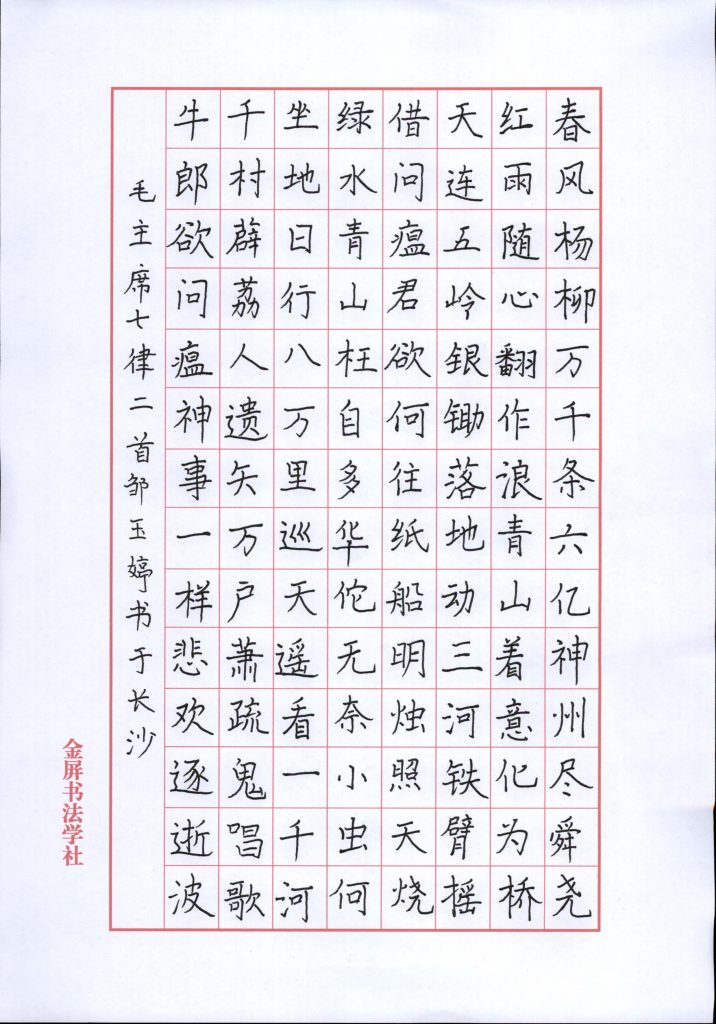 春风杨柳万千条六亿神州尽舜尧
红雨随心翻作浪青山着意化为桥
天连五岭银锄落地动三河铁臂摇
借问瘟君欲何往纸船明烛照天烧
绿水青山枉自多华佗无奈小虫何
坐地日行八万里巡天遥看一千河
千村薜荔人遗矢万户萧疏鬼唱歌
牛郎欲问瘟神事一样悲欢逐逝波
毛主席七律二首邹玉婷书于长沙
金屏书法学社